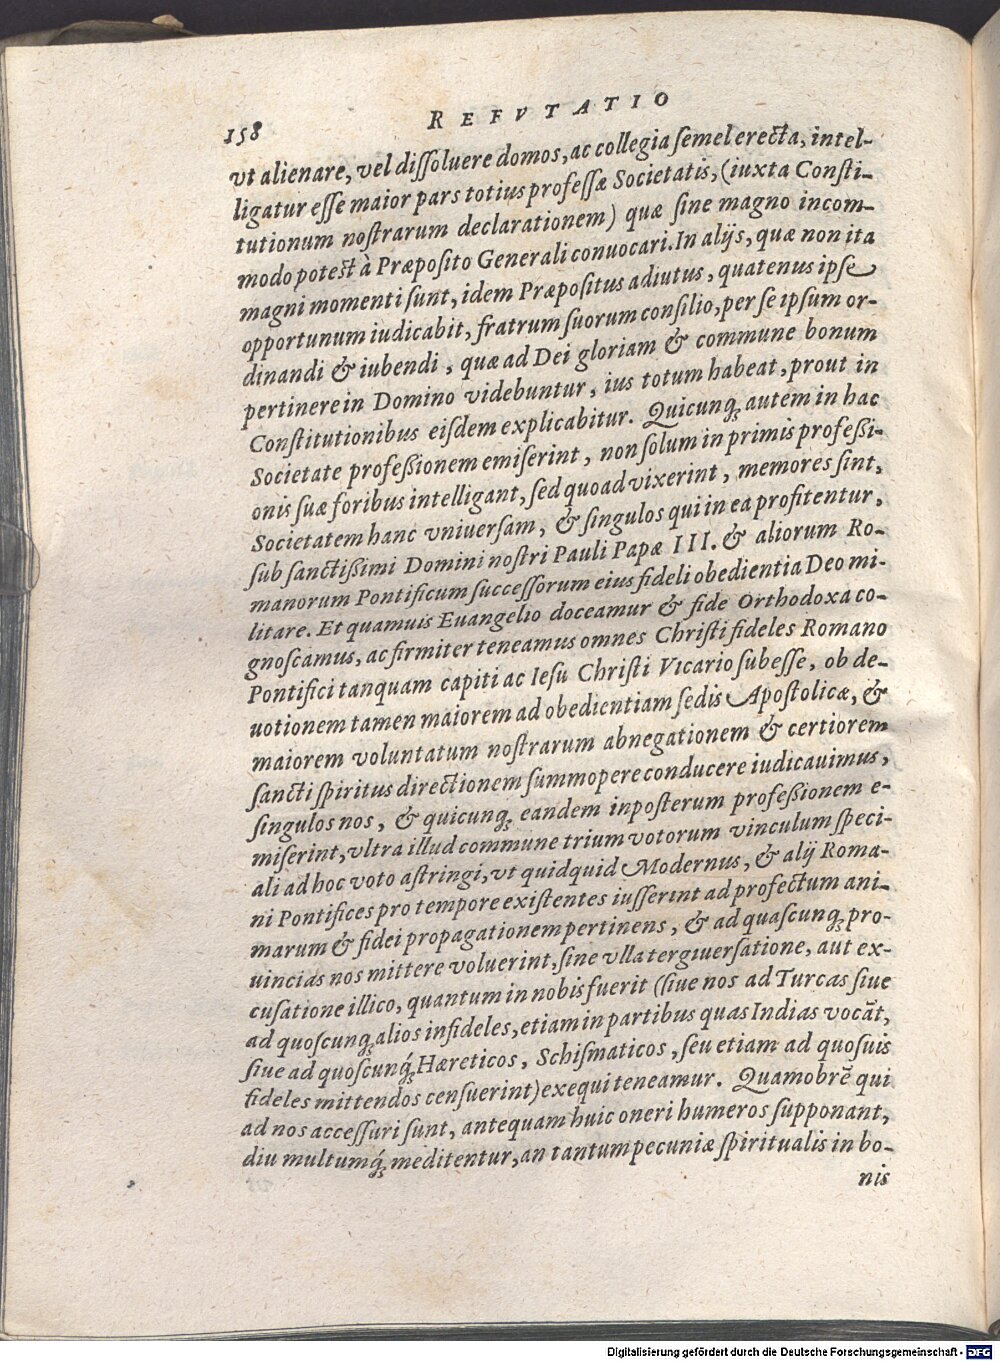 158 REFVTATIO
vt alienare, vel diſſoluere domos, ac collegia ſemel erecta, intel-
ligatur eſſe maior pars totius profeſſæ Societatis, (iuxta Conſti-
tutionum noſtrarum declarationem) quæ ſine magno incom-
modo poteſt à Præpoſito Generali conuocari. In alijs, quæ non ita
magni momenti ſunt, idem Præpoſitus adiutus, quatenus ipſe
opportunum iudicabit, fratrum ſuorum conſilio, per ſe ipſum or-
dinandi & iubendi, quæ ad Dei gloriam & commune bonum
pertinere in Domino videbuntur, ius totum habeat, prout in
Conſtitutionibus eiſdem explicabitur. Quicunq; autem in hac
Societate profeßionem emiſerint, non ſolum in primis profeßi-
onis ſuæ foribus intelligant, ſed quoad vixerint, memores ſint,
Societatem hanc vniuerſam, & ſingulos qui in ea profitentur,
ſub ſanctißimi Domini noſtri Pauli Papæ III. & aliorum Ro-
manorum Pontificum ſucceſſorum eius fideli obedientia Deo mi-
litare. Et quamuis Euangelio doceamur & fide Orthodoxa co-
gnoſcamus, ac firmiter teneamus omnes Chriſti fideles Romano
Pontifici tanquam capiti ac Ieſu Chriſti Vicario ſubeſſe, ob de-
uotionem tamen maiorem ad obedientiam ſedis Apoſtolicæ, &
maiorem voluntatum noſtrarum abnegationem & certiorem
ſancti ſpiritus directionem ſummopere conducere iudicauimus,
ſingulos nos, & quicunq; eandem inpoſterum profeßionem e-
miſerint, vltra illud commune trium votorum vinculum ſpeci-
ali ad hoc voto aſtringi, vt quidquid Modernus, & alij Roma-
ni Pontifices pro tempore exiſtentes iuſſerint ad profectum ani-
marum & fidei propagationem pertinens, & ad quaſcunq; pro-
uincias nos mittere voluerint, ſine vlla tergiuerſatione, aut ex-
cuſatione illico, quantum in nobis fuerit (ſiue nos ad Turcas ſiue
ad quoſcunq; alios infideles, etiam in partibus quas Indias vocāt,
ſiue ad quoſcunq́; Hæreticos, Schiſmaticos, ſeu etiam ad quoſuis
fideles mittendos cenſuerint) exequi teneamur. Quamobrē qui
ad nos acceſſuri ſunt, antequam huic oneri humeros ſupponant,
diu multumq́; meditentur, an tantum pecuniæ ſpiritualis in bo-
nis
Digitalisierung gefördert durch die Deutsche Forschungsgemeinschaft - DFG